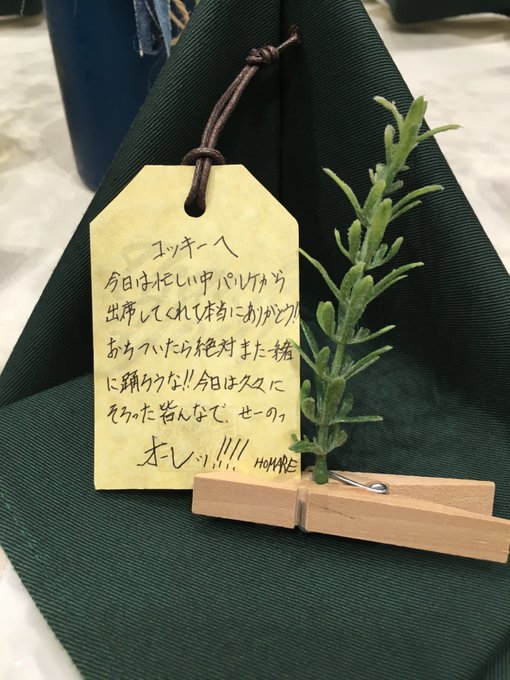 コッキーへ
今日は忙しい中パルケから
出席してくれて本当にありがとう!!
おちついたら絶対また一緒
に踊ろうな!!今日は久々に
そろった皆んなで、せーのっ
オーレッ!!!! HOMARE